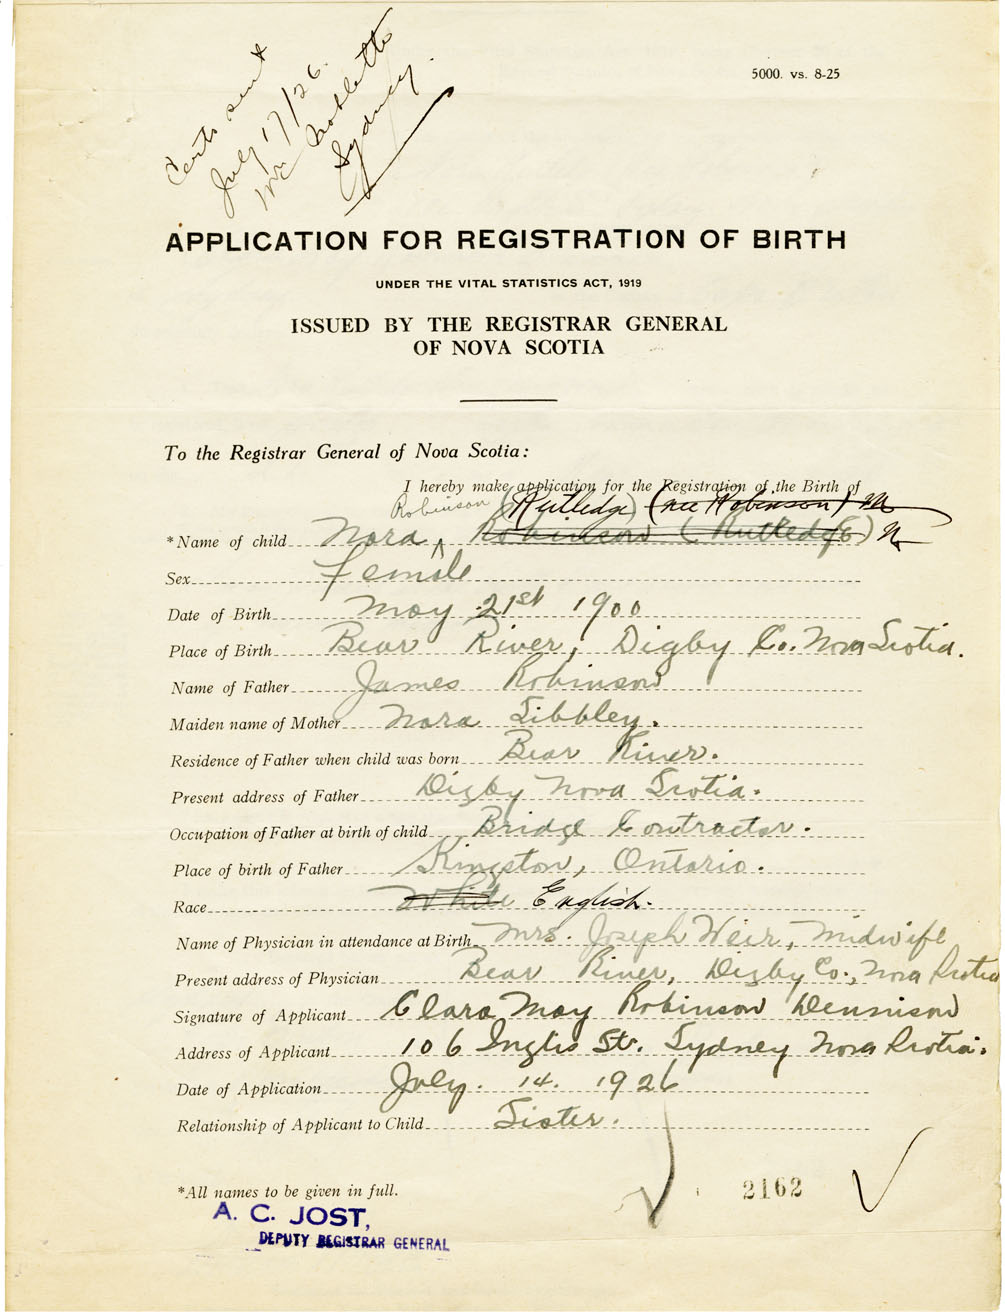 5000. vs. 8-25
Certs sent
July 17/26.
Mr
Sydney.
APPLICATION FOR REGISTRATION OF BIRTH
UNDER THE VITAL STATISTICS ACT, 1919
ISSUED BY THE REGISTRAR GENERAL
OF NOVA SCOTIA
To the Registrar General of Nova Scotia:
I hereby make application for the Registration of the Birth of
Robinson (Rutledge) (nee Robinson)
*Name of child Nora ^ Robinson (Rutledge)
Sex female
Date of Birth May 21st 1900
Place of Birth Bear River, Digby Co. Nova Scotia.
Name of Father James Robinson
Maiden name of Mother Nora Sibbley.
Residence of Father when child was born Bear River.
Present address of Father Digby Nova Scotia.
Occupation of Father at birth of child Bridge Contractor.
Place of birth of Father Kingston, Ontario.
Race White English.
Name of Physician in attendance at Birth Mrs. Joseph Weir, Midwife
Present address of Physician Bear River, Digby Co., Nova Scotia
Signature of Applicant Clara May Robinson Dennison
Address of Applicant 106 Inglis St. Sydney Nova Scotia.
Date of Application July. 14. 1926
Relationship of Applicant to Child Sister.
2162
*All names to be given in full.
A. C. JOST,
DEPUTY REGISTRAR GENERAL